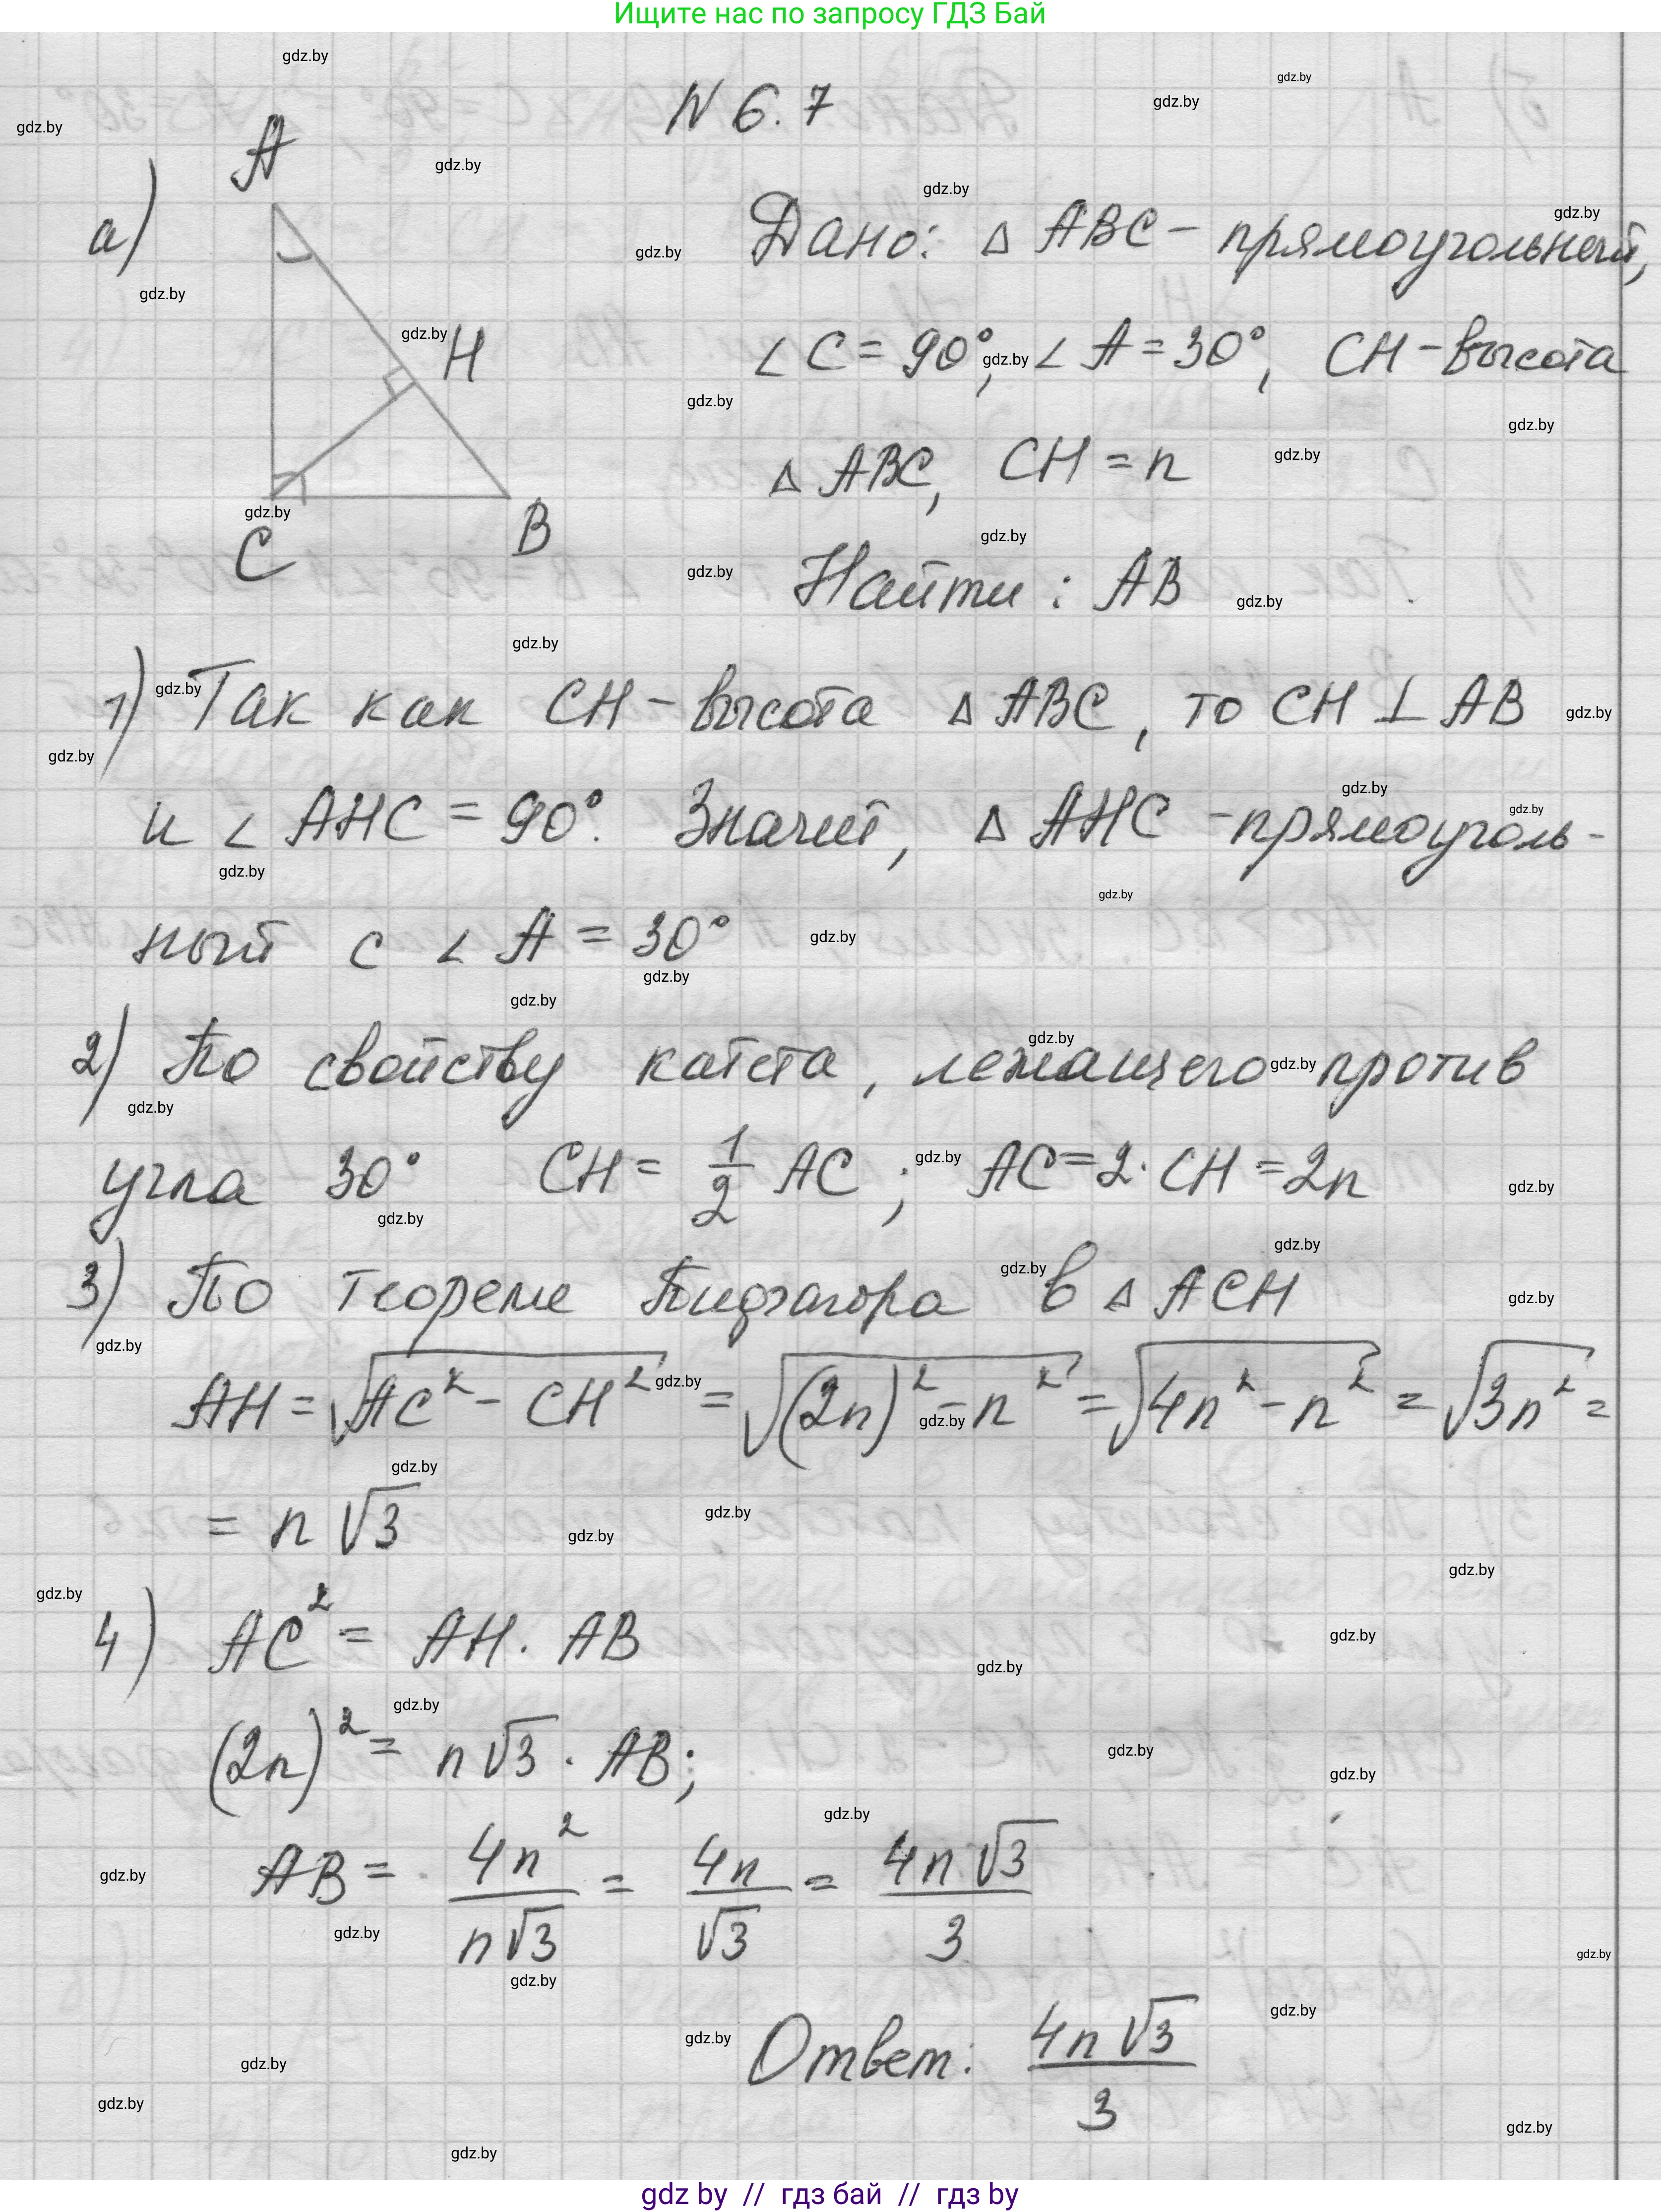 Ищите нас по запросу ГДЗ Бай
N 6.7
а)
A
H
C
B
Дано: △ ABC - прямоугольный,
∠ C = 90°, ∠ A = 30°, CH - высота
△ ABC, CH = n
Найти: AB
1) Так как CH - высота △ ABC, то CH ⊥ AB
и ∠ AHC = 90°. Значит, △ AHC - прямоуголь-
ный с ∠ A = 30°
2) По свойству катета, лежащего против
угла 30° CH = 1/2 AC ; AC = 2 · CH = 2n
3) По теореме Пифагора в △ ACH
AH = √(AC² - CH²) = √((2n)² - n²) = √(4n² - n²) = √(3n²) =
= n√3
4) AC² = AH · AB
(2n)² = n√3 · AB;
AB = 4n²/n√3 = 4n/√3 = 4n√3/3
Ответ: 4n√3/3
gdz by // гдз бай // гдз by